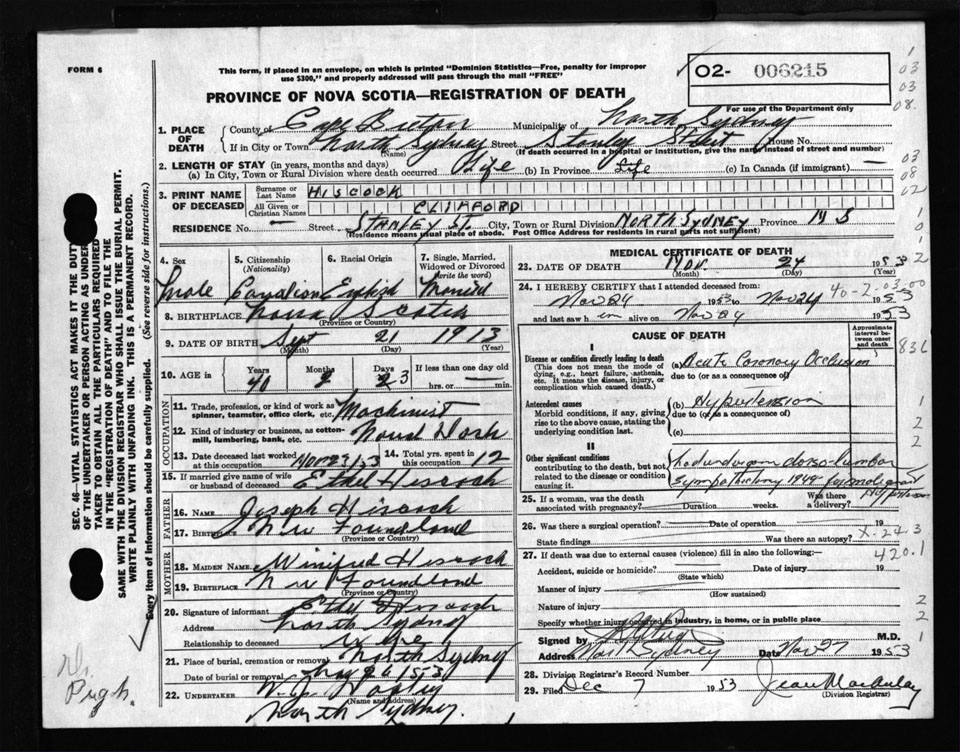 FORM 6
This form, if placed in an envelope, on which is printed "Dominion Statistics—Free, penalty for improper
use $300," and properly addressed will pass through the mail "FREE"
02- 006215
For use of the Department only
PROVINCE OF NOVA SCOTIA—REGISTRATION OF DEATH
1. PLACE OF DEATH
County of Cape Breton Municipality of North Sydney
If in City or Town North Sydney Street Stanley Street House No.
(Name) (If death occurred in a hospital or institution, give the name instead of street and number)
2. LENGTH OF STAY (in years, months and days)
(a) In City, Town or Rural Division where death occurred Life (b) In Province Life (c) In Canada (if immigrant) —
3. PRINT NAME OF DECEASED
Surname or Last Name HISCOCK
All Given or Christian Names CLIFFORD
RESIDENCE No. — Street STANLEY ST. City, Town or Rural Division NORTH SYDNEY Province N S
(Residence means usual place of abode. Post Office Address for residents in rural parts not sufficient)
4. Sex
Male
5. Citizenship (Nationality)
Canadian
6. Racial Origin
English
7. Single, Married, Widowed or Divorced (write the word)
Married
8. BIRTHPLACE Nova Scotia
(Province or Country)
9. DATE OF BIRTH Sept 21 1913
(Month) (Day) (Year)
10. AGE in Years Months Days If less than one day old
40 2 23 hrs. or — min.
OCCUPATION
11. Trade, profession, or kind of work as spinner, teamster, office clerk, etc. Machinist
12. Kind of industry or business, as cotton-mill, lumbering, bank, etc.
13. Date deceased last worked at this occupation 14. Total yrs. spent in this occupation 12
15. If married give name of wife or husband of deceased Ethel Hiscock
FATHER
16. NAME Joseph Hiscock
17. BIRTHPLACE New Foundland
(Province or Country)
MOTHER
18. MAIDEN NAME Winifred Hiscock
19. BIRTHPLACE New Foundland
(Province or Country)
20. Signature of informant Ethel Hiscock
Address North Sydney
Relationship to deceased Wife
21. Place of burial, cremation or removal North Sydney
Date of burial or removal
22. UNDERTAKER
(Name and address)
North Sydney.
MEDICAL CERTIFICATE OF DEATH
23. DATE OF DEATH Nov. 24 1953
(Month) (Day) (Year)
24. I HEREBY CERTIFY that I attended deceased from:
Nov 24 1953 to Nov 24 1953
and last saw h im alive on Nov 24 1953
40-2-03-00
CAUSE OF DEATH
Approximate interval between onset and death
I
Disease or condition directly leading to death
(This does not mean the mode of dying, e.g., heart failure, asthenia, etc. It means the disease, injury, or complication which caused death.)
(a) Acute Coronary Occlusion
due to (or as a consequence of)
Antecedent causes
Morbid conditions, if any, giving rise to the above cause, stating the underlying condition last.
(b) Hypertension
due to (or as a consequence of)
(c)
II
Other significant conditions
contributing to the death, but not related to the disease or condition causing it.
had undergone dorso-lumbar
sympathectomy 1948 for malignant
Hypertension
25. If a woman, was the death associated with pregnancy? Duration weeks. Was there a delivery?
26. Was there a surgical operation? Date of operation 19
State findings Was there an autopsy?
27. If death was due to external causes (violence) fill in also the following:—
Accident, suicide or homicide? Date of injury 19
(State which)
Manner of injury
(How sustained)
Nature of injury
Specify whether injury occurred in industry, in home, or in public place
Signed by M.D.
Address North Sydney Date Nov 27 1953
28. Division Registrar's Record Number
29. Filed Dec 7 1953 Jean MacAulay
(Division Registrar)
420.1
SEC. 46—VITAL STATISTICS ACT MAKES IT THE DUTY
OF THE UNDERTAKER OR PERSON ACTING AS UNDERTAKER
TO OBTAIN ALL THE PARTICULARS REQUIRED
IN THE "REGISTRATION OF DEATH" AND TO FILE THE
SAME WITH THE DIVISION REGISTRAR WHO SHALL ISSUE THE BURIAL PERMIT.
WRITE PLAINLY WITH UNFADING INK. THIS IS A PERMANENT RECORD.
Every item of information should be carefully supplied. (See reverse side for instructions.)
Dr.
Pugh.